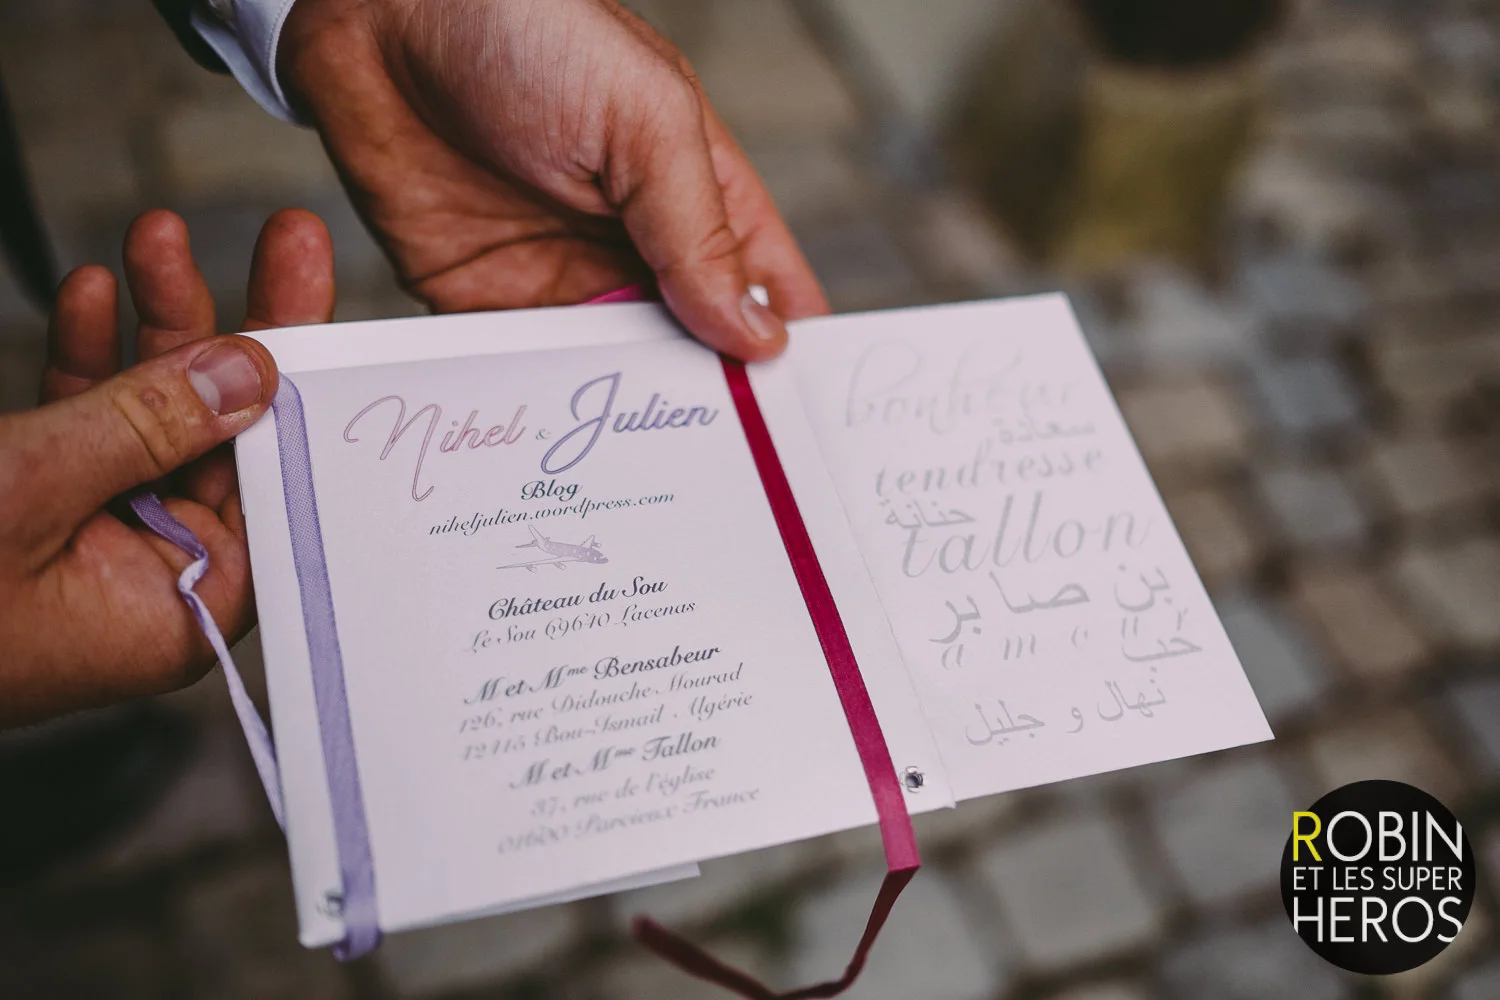 Nihel & Julien
Blog
niheljulien.wordpress.com
Château du Sou
Le Sou 69640 Lacenas
M et Mme Bensabeur
126, rue Didouche Mourad
42415 Bou-Ismail Algérie
M et Mme Tallon
37, rue de l'église
01600 Parcieux France
bonheur
سعادة
tendresse
حنانة
tallon
بن صابر
amour
حب
نهال و جليل
ROBIN
ET LES SUPER
HEROS